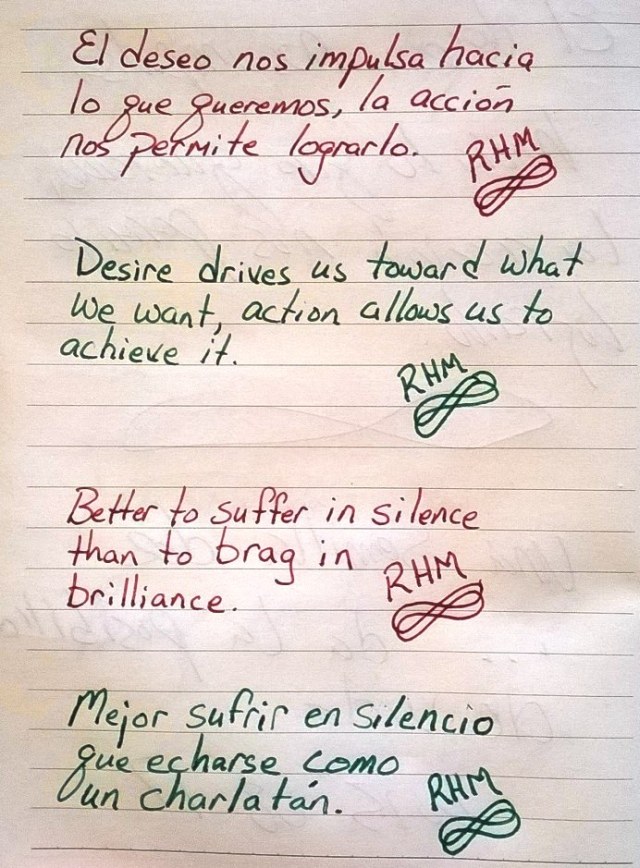 El deseo nos impulsa hacia
lo que queremos, la acción
nos permite lograrlo.
RHM
Desire drives us toward what
we want, action allows us to
achieve it.
RHM
Better to suffer in silence
than to brag in
brilliance.
RHM
Mejor sufrir en silencio
que echarse como
un charlatán.
RHM